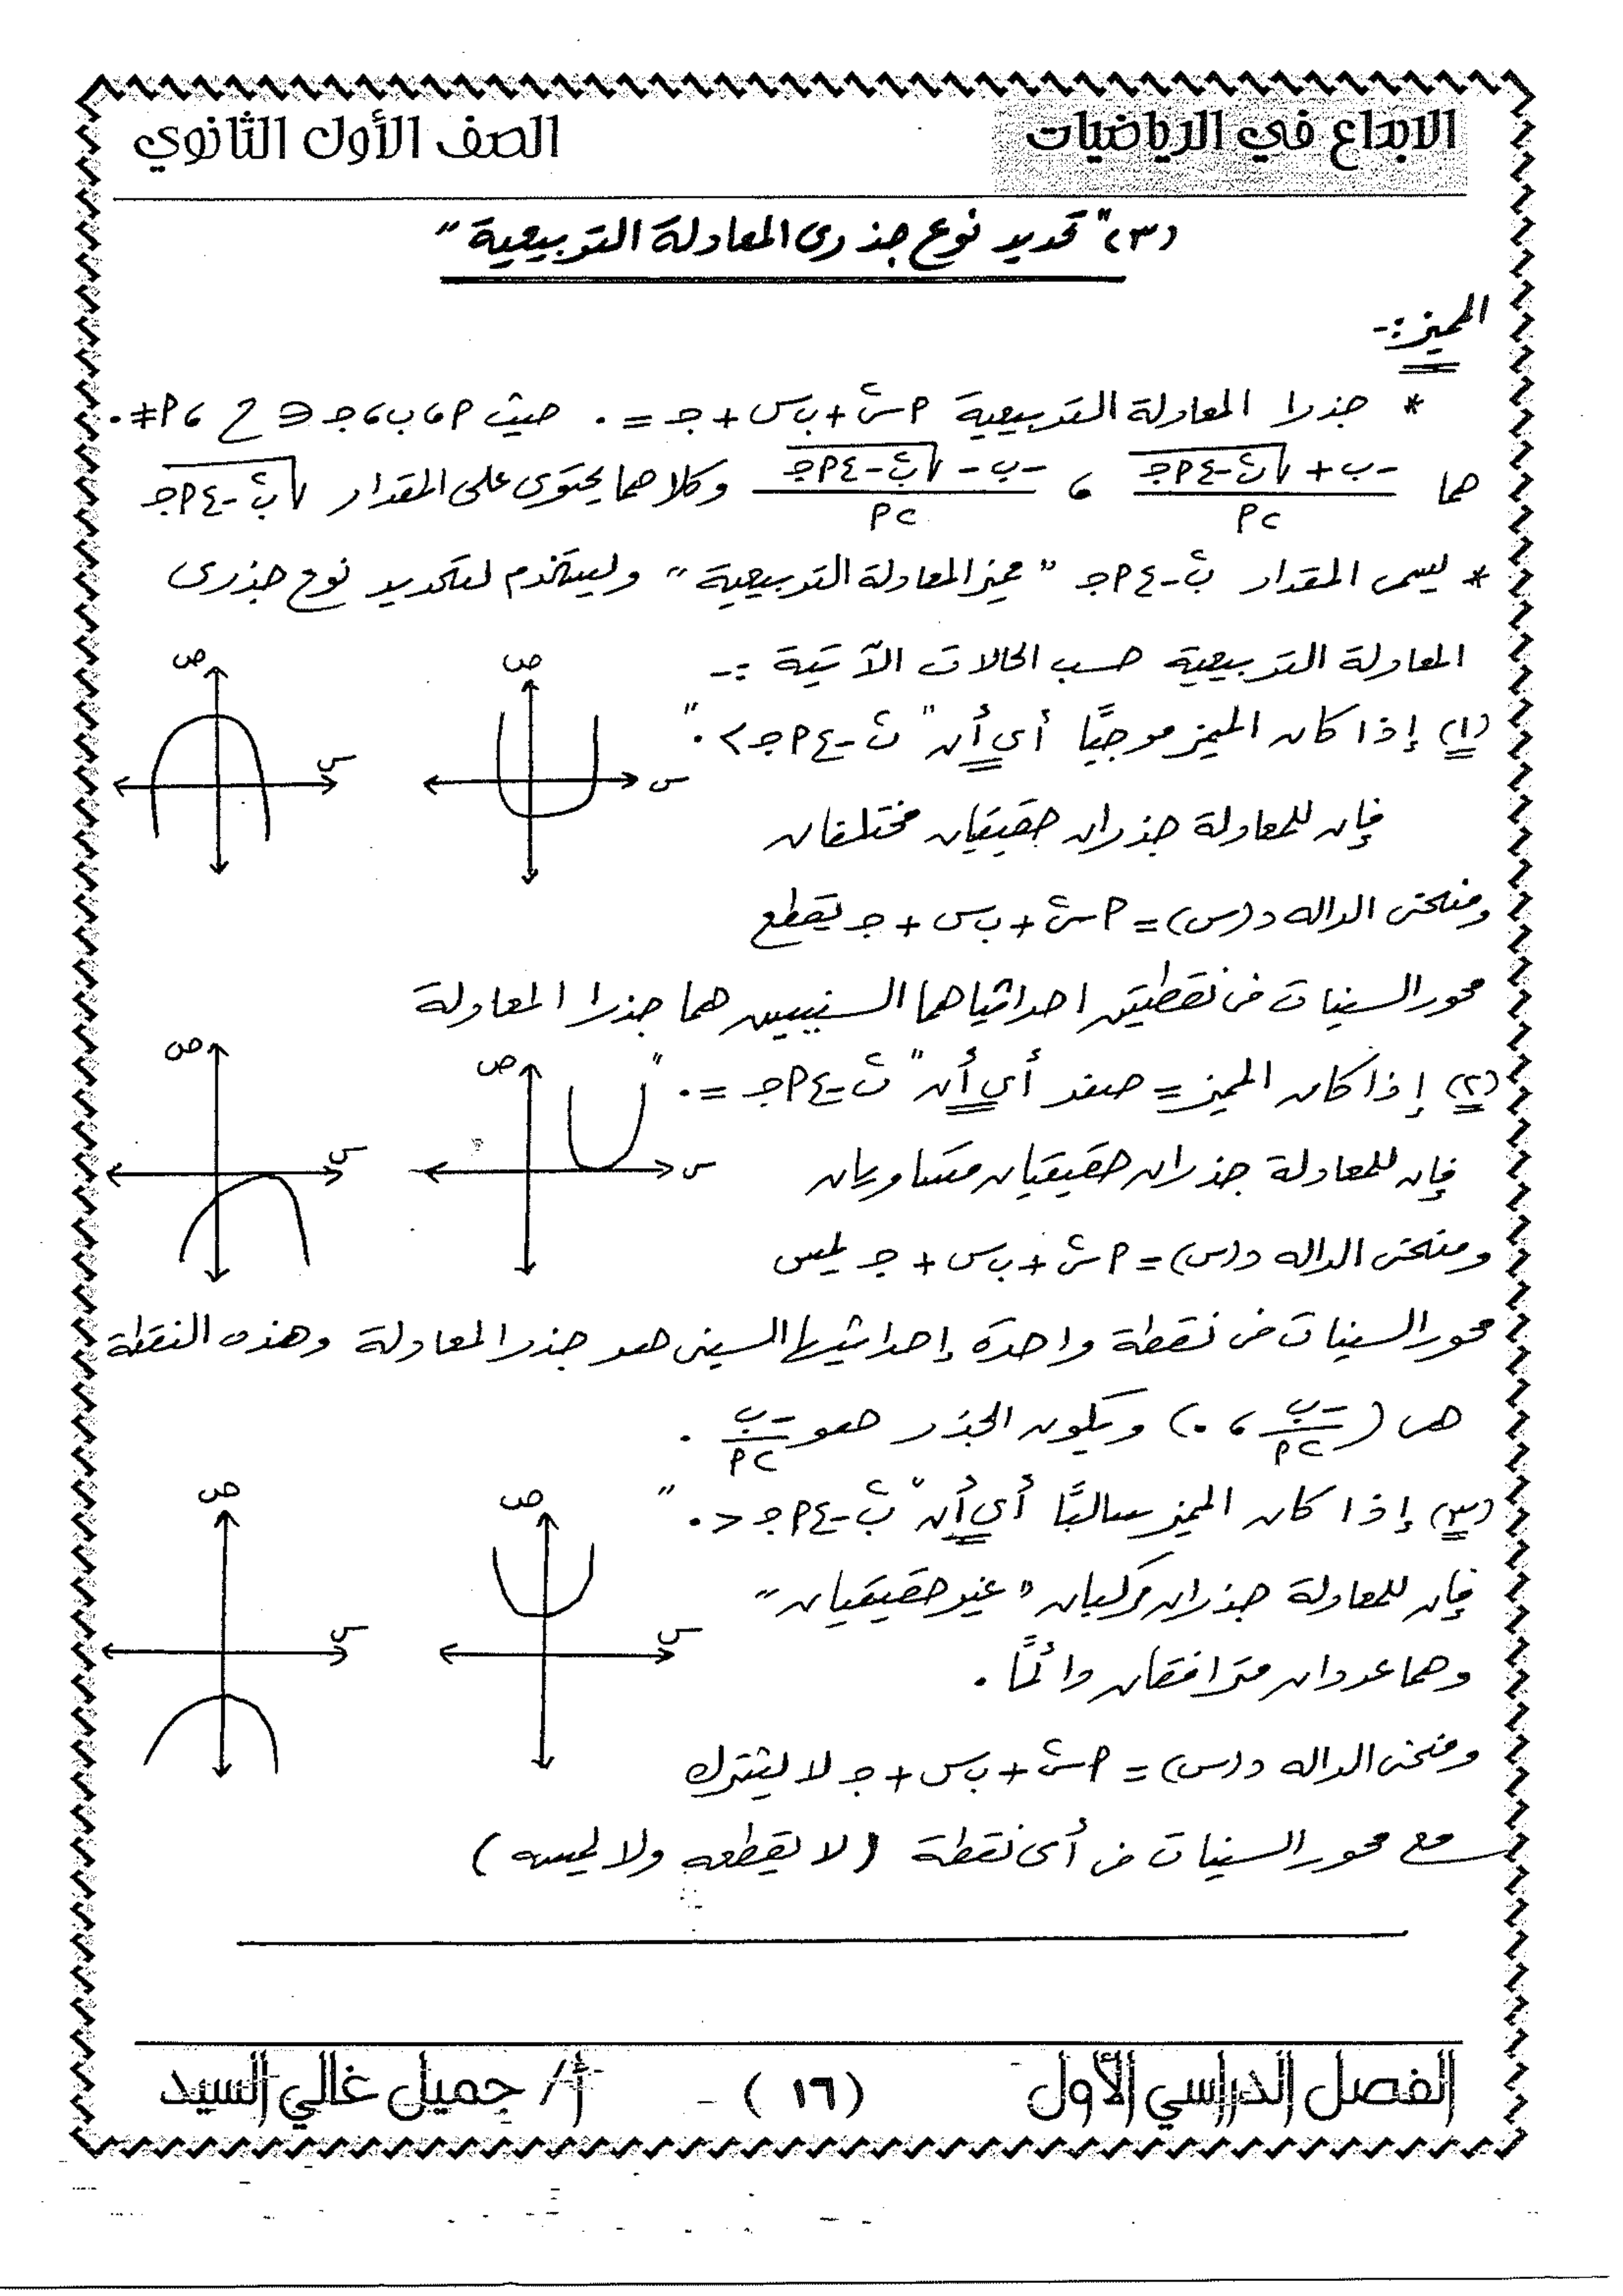 الابداع في الرياضيات
الصف الأول الثانوي
(٣) "تحديد نوع جذرى المعادلة التربيعية"
المميز :-
* جذرا المعادلة التربيعية أ س² + ب س + جـ = ٠ حيث أ ، ب ، جـ ∈ ح ، أ ≠ ٠
هما (-ب + √(ب² - ٤ أ جـ)) / ٢أ ، (-ب - √(ب² - ٤ أ جـ)) / ٢أ وكلاهما يحتوى على المقدار √(ب² - ٤ أ جـ)
* يسمى المقدار ب² - ٤ أ جـ "مميز المعادلة التربيعية" ويستخدم لتحديد نوع جذرى
المعادلة التربيعية حسب الحالات الآتية :-
ص
ص
س
س
(١) إذا كان المميز موجبًا أي أن "ب² - ٤ أ جـ > ٠"
فإن للمعادلة جذران حقيقيان مختلفان
ومنحنى الداله د(س) = أ س² + ب س + جـ يقطع
محور السينات فى نقطتين احداثياهما السينيين هما جذرا المعادلة
ص
ص
س
س
(٢) إذا كان المميز = صفر أي أن "ب² - ٤ أ جـ = ٠"
فإن للمعادلة جذران حقيقيان متساويان
ومنحنى الداله د(س) = أ س² + ب س + جـ يمس
محور السينات فى نقطة واحدة إحداثيها السينى هو جذر المعادلة وهذه النقطة
هى (-ب / ٢أ ، ٠) ويكون الجذر هو -ب / ٢أ .
ص
ص
س
س
(٣) إذا كان المميز سالبًا أي أن "ب² - ٤ أ جـ < ٠"
فإن للمعادلة جذران مركبان "غير حقيقيان"
وهما عددان مترافقان دائمًا .
ومنحنى الداله د(س) = أ س² + ب س + جـ لا يشترك
مع محور السينات فى أى نقطة (لا يقطعه ولا يمسه)
الفصل الدراسي الأول
( ١٦ )
أ/ جميل غالي السيد